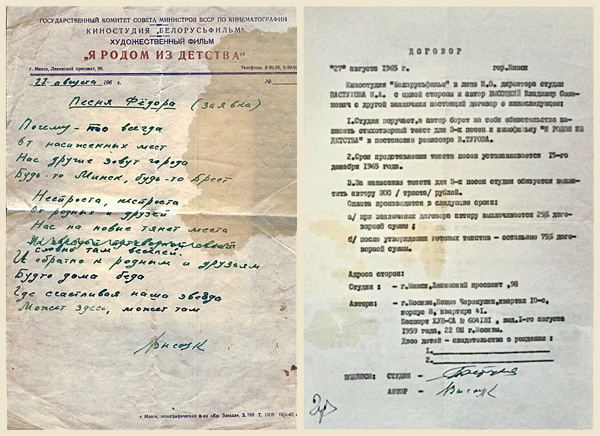 ГОСУДАРСТВЕННЫЙ КОМИТЕТ СОВЕТА МИНИСТРОВ БССР ПО КИНЕМАТОГРАФИИ
КИНОСТУДИЯ „БЕЛОРУСЬФИЛЬМ"
ХУДОЖЕСТВЕННЫЙ ФИЛЬМ
„Я РОДОМ ИЗ ДЕТСТВА"
г. Минск, Ленинский проспект, 98.
Телефоны:
22 августа 196 г.
№
Песня Фёдора (заявка)
Почему-то всегда
От насиженных мест
Нас другие зовут города
Будь-то Минск, будь-то Брест
Неспроста, неспроста
От родных и друзей
Нас на новые тянет места
словно там веселей.
И обратно к родным и друзьям
Будто дома беда
Где счастливая наша звезда
Может здесь, может там
Высоцк
ДОГОВОР
"27" августа 1965 г. гор.Минск
Киностудия "Беларусьфильм" в лице И.О. директора студии
ПАСТУХОВА И.А. с одной стороны и автор ВЫСОЦКИЙ Владимир Семе-
нович с другой заключили настоящий договор о нижеследующем:
1.Студия поручает, а автор берет на себя обязательство на-
писать стихотворный текст для 3-х песен к кинофильму "Я РОДОМ ИЗ
ДЕТСТВА" в постановке режиссера В.ТУРОВА.
2.Срок представления текста песен устанавливается 15-го
декабря 1965 года.
3.За написание текста для 3-х песен студия обязуется выпла-
тить автору 300 /триста/ рублей.
Оплата производится в следующие сроки:
а/ при заключении договора автору выплачивается 25% дого-
ворной суммы;
б/ после утверждения готовых текстов - остальные 75% дого-
ворной суммы.
Адреса сторон:
Студия: - г.Минск,Ленинский проспект ,98
Автора: - г.Москва,Новые Черемушки,квартал 10-с,
корпус 8, квартира 41.
Паспорт № 604181 , выд.1-го августа
1959 года, 22 ОМ г.Москвы.
Двое детей - свидетельства о рождении :
1.
2.
ПОДПИСИ: СТУДИЯ -
АВТОР - Высоцк